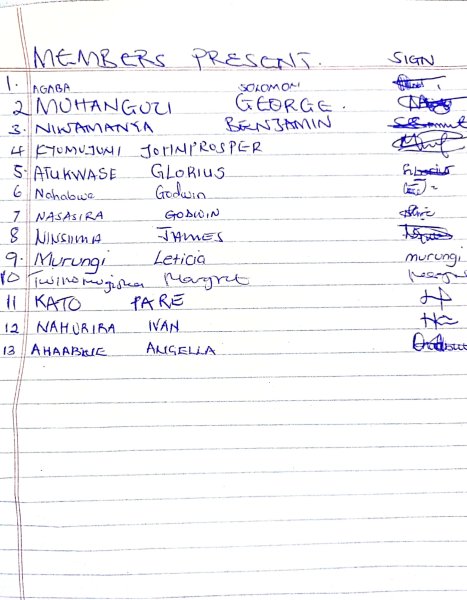 MEMBERS PRESENT. SIGN
1. AGABA SOLOMON
2 MUHANGUZI GEORGE.
3. NIWAMANYA BENJAMIN
4 KYOMUJUNI JOHNPROSPER
5. ATUKWASE GLORIUS
6 Nahabwe Godwin
7 NASASIRA GODWIN
8 NINSIIMA JAMES
9. Murungi Leticia murungi
10 Twinomugisha Margret
11 KATO PARE
12 NAHURIRA IVAN
13 ANGELLA